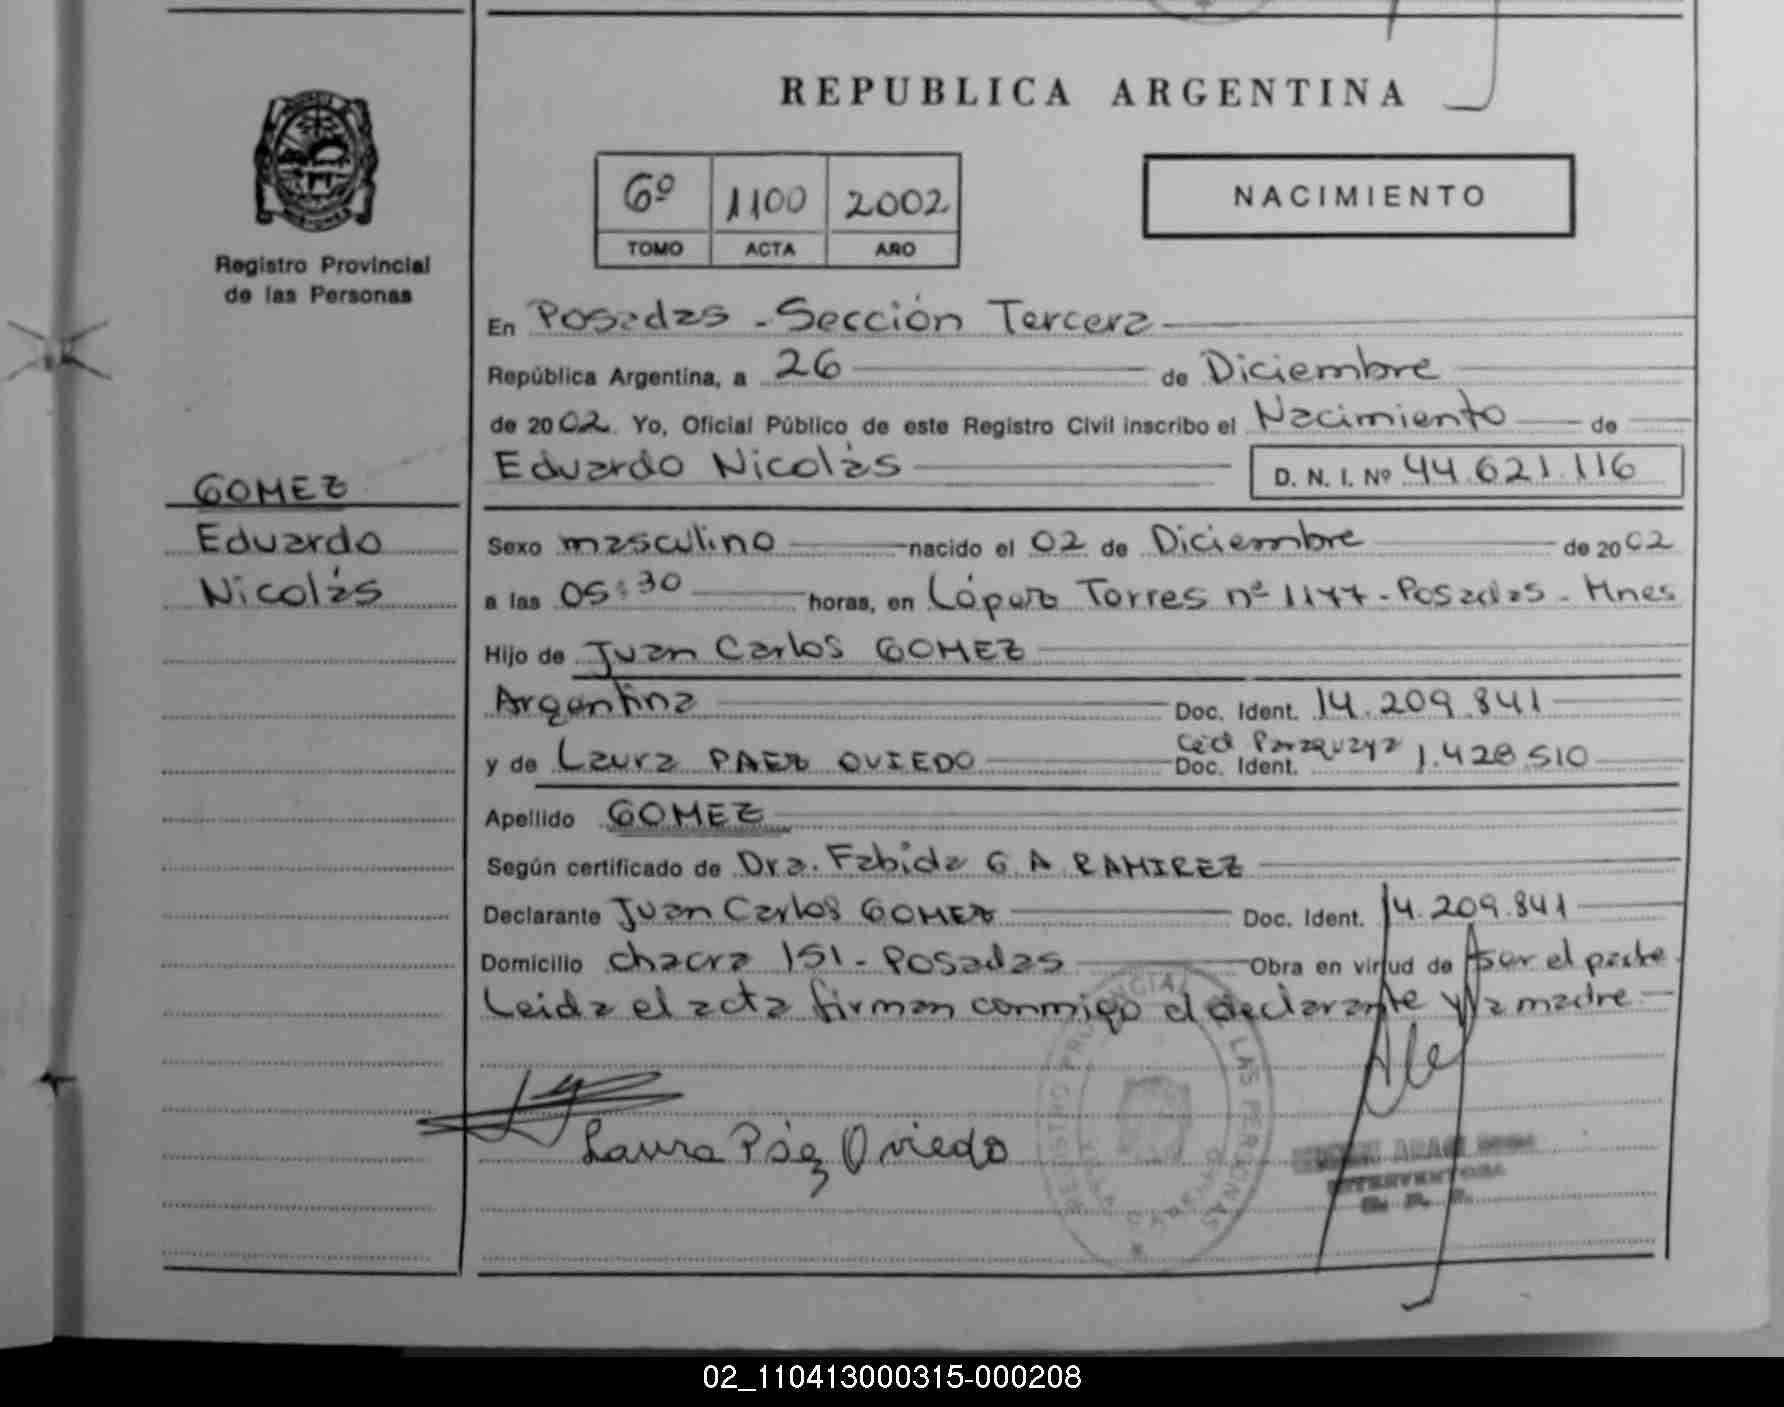 REPUBLICA ARGENTINA
6º 1100 2002
TOMO ACTA AÑO
NACIMIENTO
Registro Provincial
de las Personas
En Posadas - Sección Tercera
República Argentina, a 26 de Diciembre
de 2002. Yo, Oficial Público de este Registro Civil inscribo el Nacimiento de
Eduardo Nicolás D. N. I. Nº 44.621.116
GOMEZ
Eduardo
Nicolás
Sexo masculino nacido el 02 de Diciembre de 2002
a las 05:30 horas, en López Torres nº 1177 - Posadas - Mnes
Hijo de Juan Carlos GOMEZ
Argentina Doc. Ident. 14.209.841
y de Laura PAEZ OVIEDO Céd Paraguaya Doc. Ident. 1.428.510
Apellido GOMEZ
Según certificado de Dra. Fabida G. A. RAMIREZ
Declarante Juan Carlos GOMEZ Doc. Ident. 14.209.841
Domicilio chacra 151 - Posadas Obra en virtud de ser el padre.
Leida el acta firman conmigo el declarante y la madre.
Laura Páez Oviedo
REGISTRO PROVINCIAL DE LAS PERSONAS
02_110413000315-000208